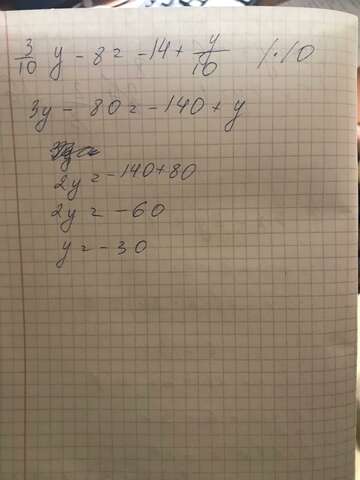 3/10 y - 8 = -14 + y/10 /·10
3y - 80 = -140 + y
2y = -140+80
2y = -60
y = -30